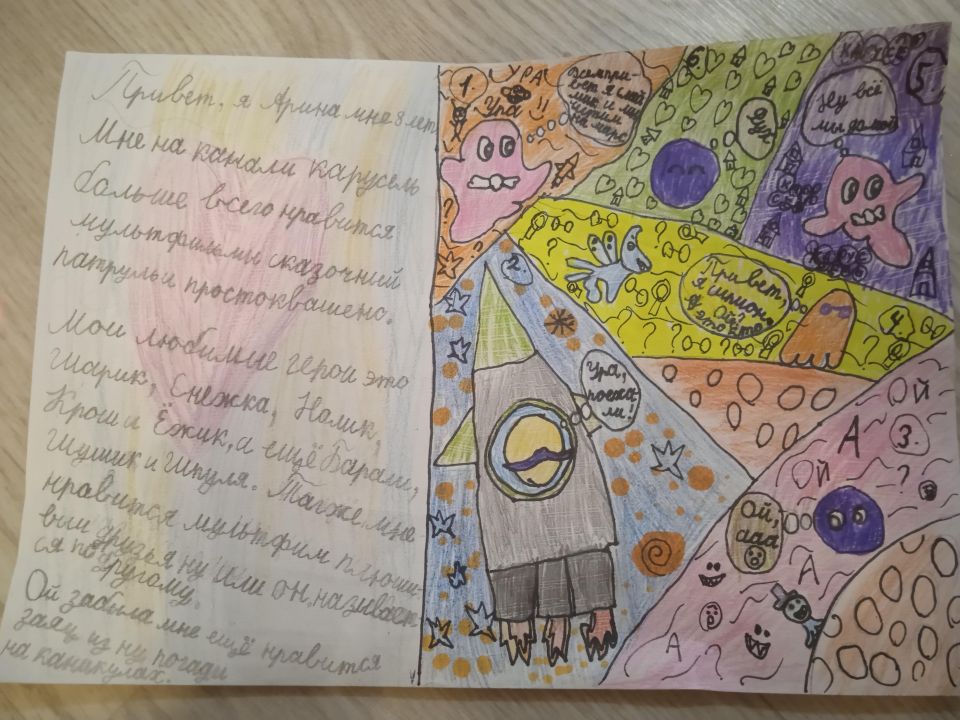 Привет, я Арина мне 8 лет
Мне на канали карусель
больше всего нравится
мультфильмы сказочний
патруль и простоквашено.
Мои любимые герои это
Шарик, Снежка, Нолик,
Крош и Ёжик, а ещё Бараш,
Шушик и Шпуля. Также мне
нравится мультфим плюши-
вые друзья ну или он называет
ся по
другому.
Ой забыла мне ещё нравится
заяц из ну погоди
на каникулах.
1.
УРА
Ура !!
Всем при-
вет я
и мы
летим
на марс
6.
Я
5
Ну всё
мы домой
2.
Ура,
поеха-
ли!
Привет,
я шпион
Ой!
А это кто?
4.
3.
ОЙ
А
ОЙ
?
Ой,
ааа
А
А